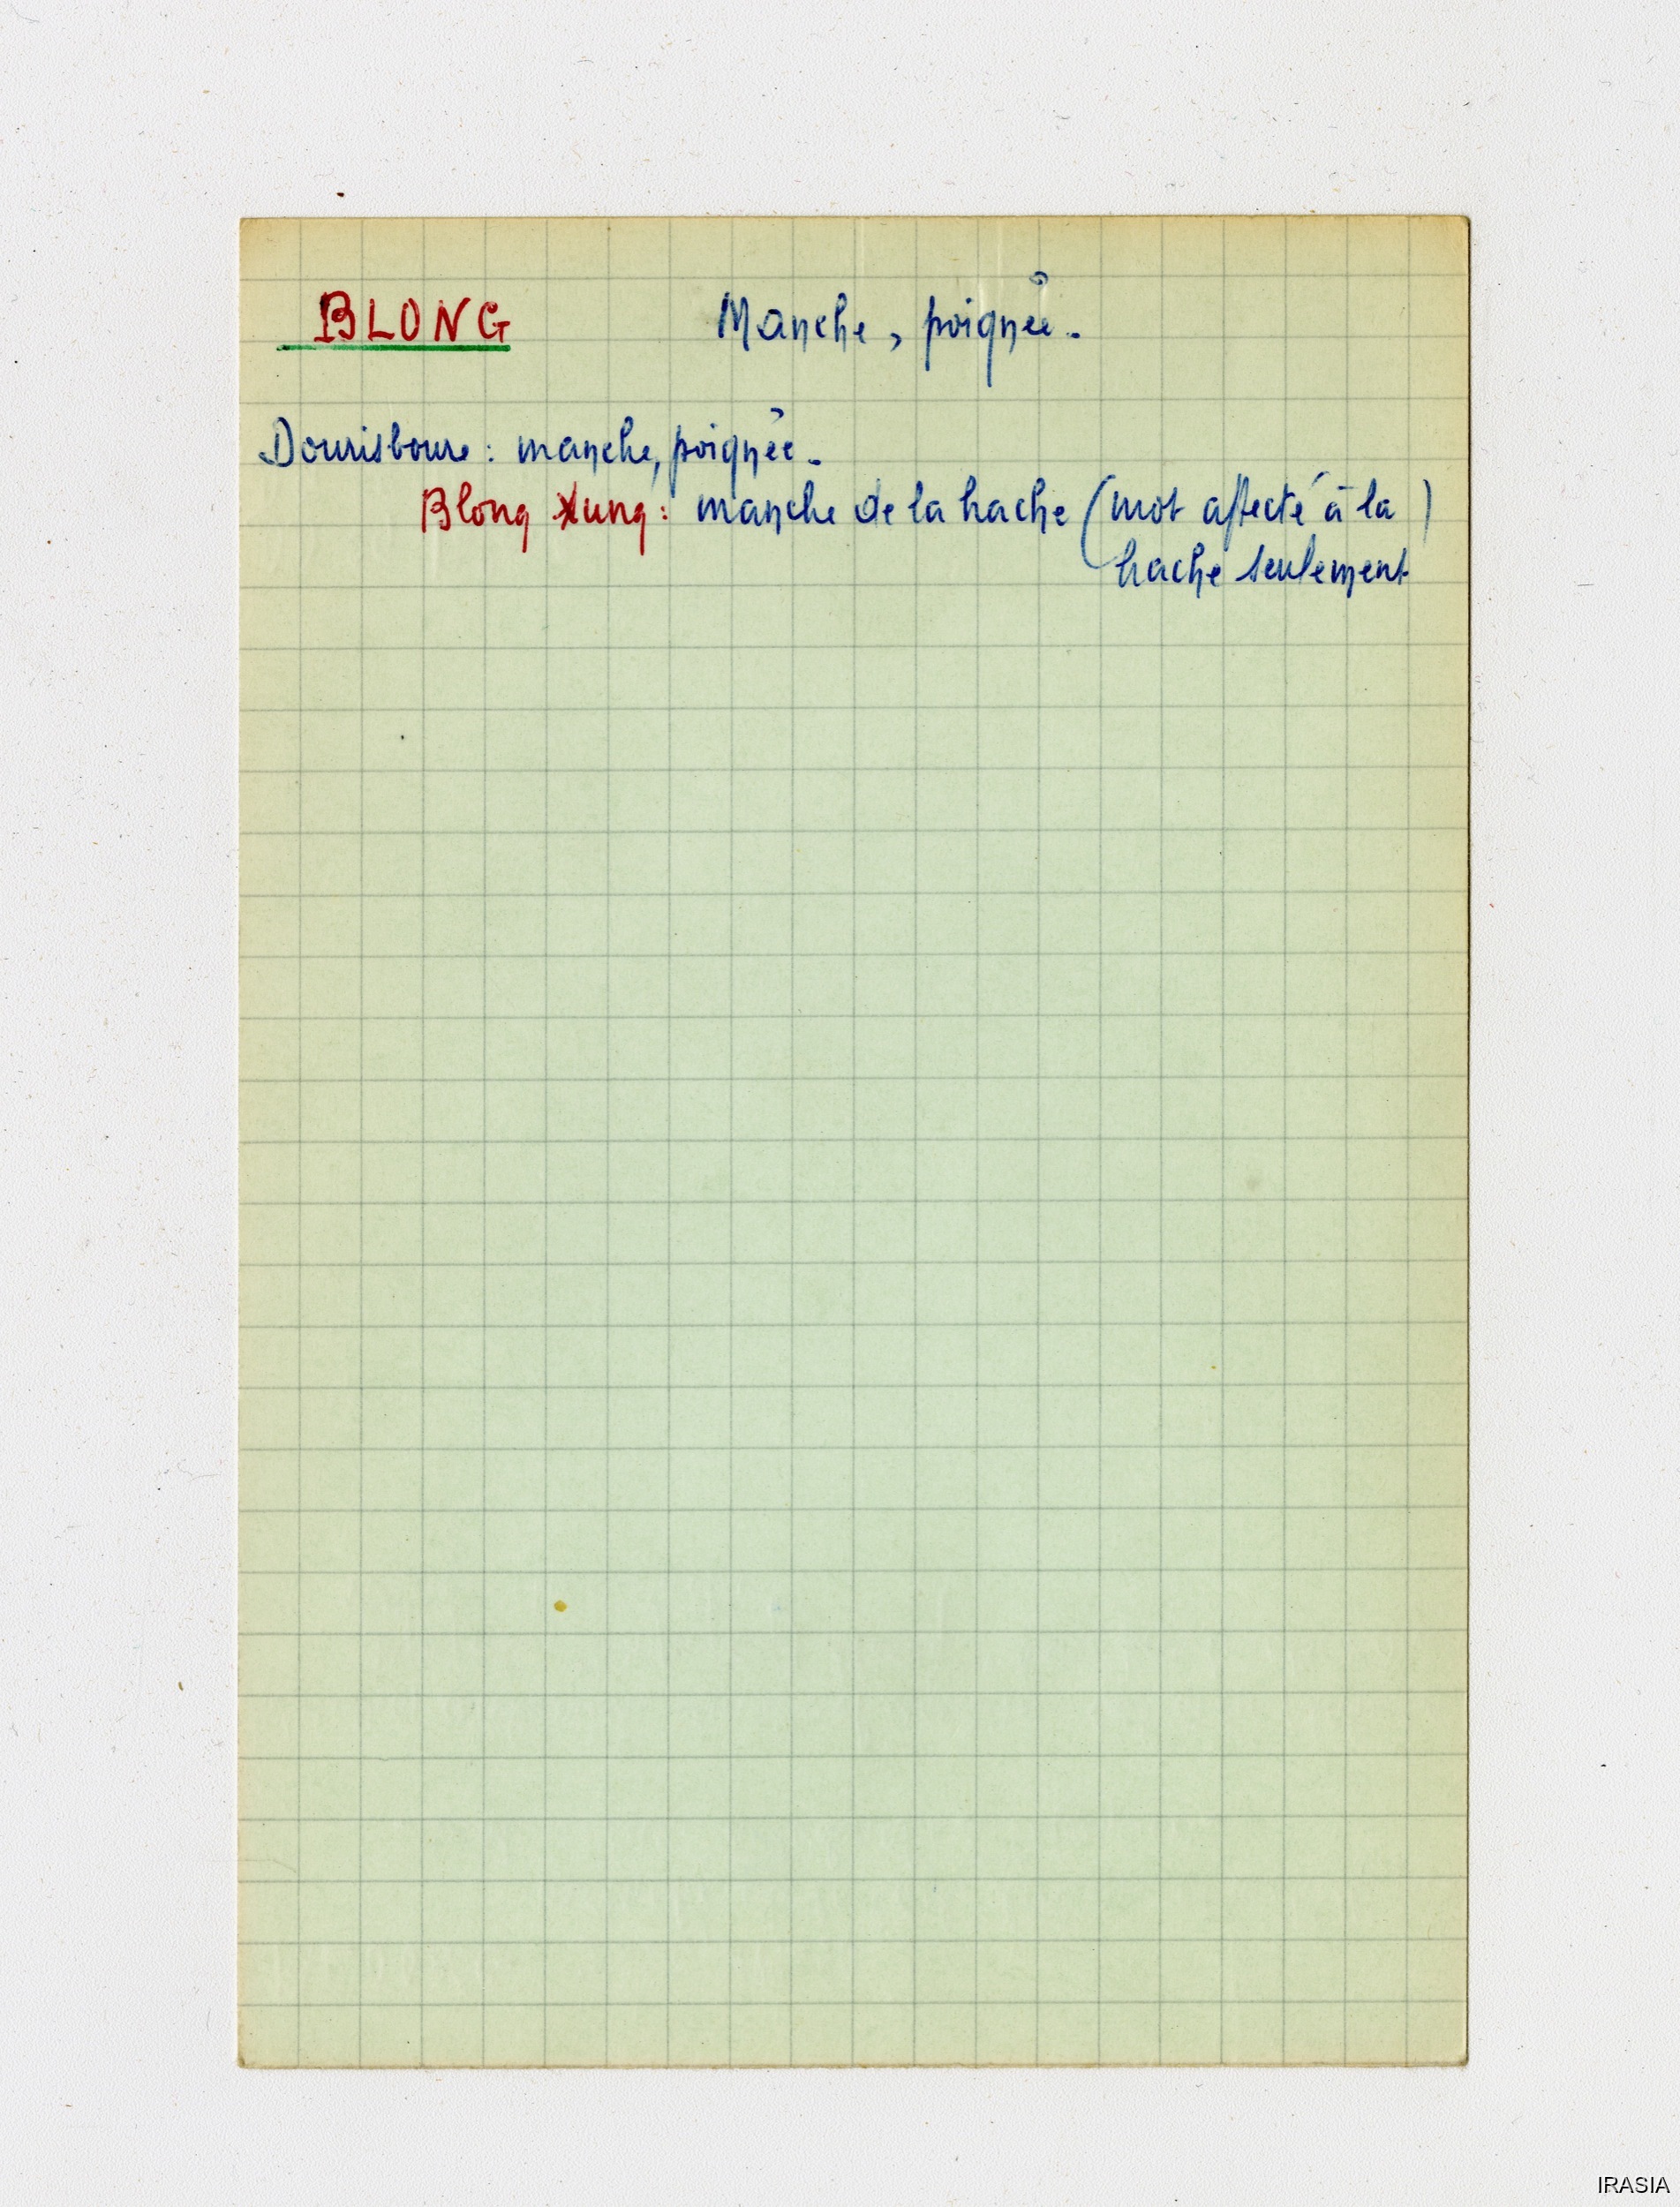 BLONG Manche, poignée.
Dourisboure : manche, poignée.
Blong Xung : manche de la hache (mot affecté à la)
hache seulement
IRASIA